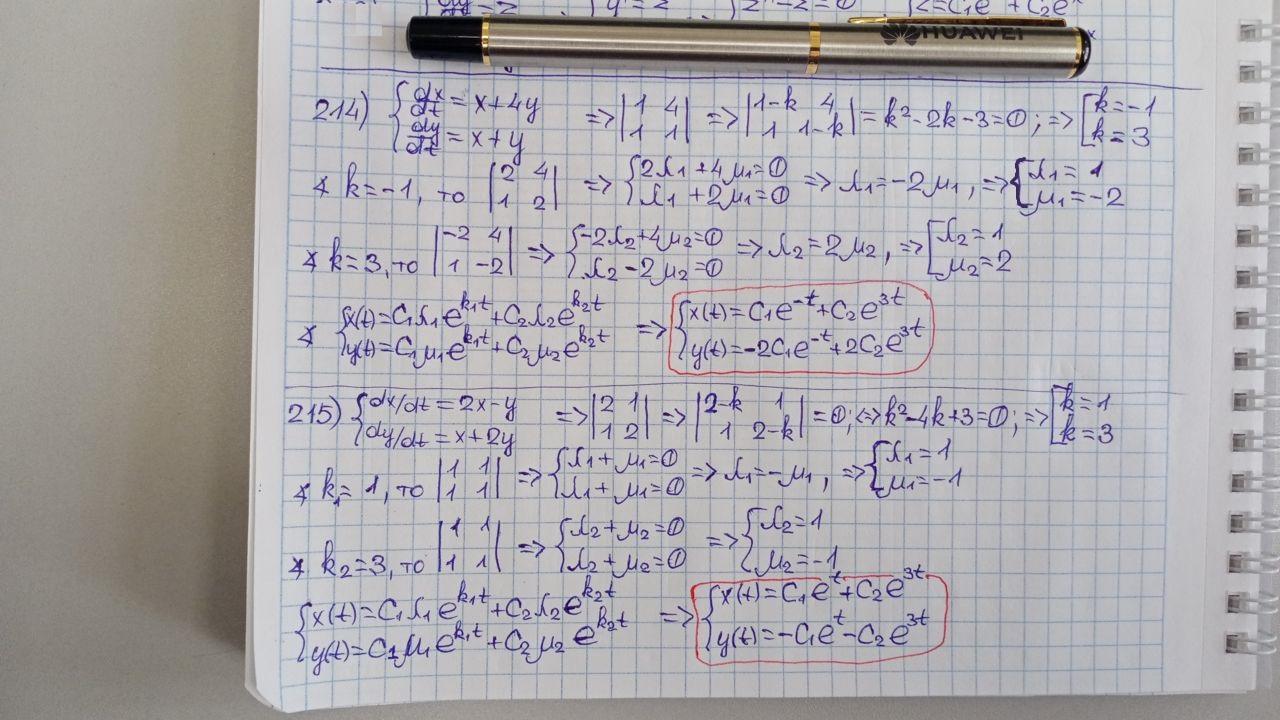 dy = z { y' = z z'' - z = 0 z = C₁e + C₂eˣ
HUAWEI
214) { dx/dt = x+4y dy/dt = x+y => |1 4 1 1| => |1-k 4 1 1-k| = k²-2k-3=0; => [k=-1 k=3
∡ k=-1, то |2 4 1 2| => {2λ₁+4μ₁=0 λ₁+2μ₁=0 => λ₁=-2μ₁, => {λ₁=1 μ₁=-2
∡ k=3, то |-2 4 1 -2| => {-2λ₂+4μ₂=0 λ₂-2μ₂=0 => λ₂=2μ₂, => [λ₂=1 μ₂=2
∡ {x(t)=C₁λ₁e^{k₁t}+C₂λ₂e^{k₂t} y(t)=C₁μ₁e^{k₁t}+C₂μ₂e^{k₂t} => {x(t)=C₁e^{-t}+C₂e^{3t} y(t)=-2C₁e^{-t}+2C₂e^{3t}
215) {dx/dt=2x-y dy/dt=x+2y => |2 1 1 2| => |2-k 1 1 2-k| = 0; <=> k²-4k+3=0; => [k=1 k=3
∡ k₁=1, то |1 1 1 1| => {λ₁+μ₁=0 λ₁+μ₁=0 => λ₁=-μ₁, => {λ₁=1 μ₁=-1
∡ k₂=3, то |1 1 1 1| => {λ₂+μ₂=0 λ₂+μ₂=0 => {λ₂=1 μ₂=-1
{x(t)=C₁λ₁e^{k₁t}+C₂λ₂e^{k₂t} y(t)=C₁μ₁e^{k₁t}+C₂μ₂e^{k₂t} => {x(t)=C₁e^{t}+C₂e^{3t} y(t)=-C₁e^{t}-C₂e^{3t}